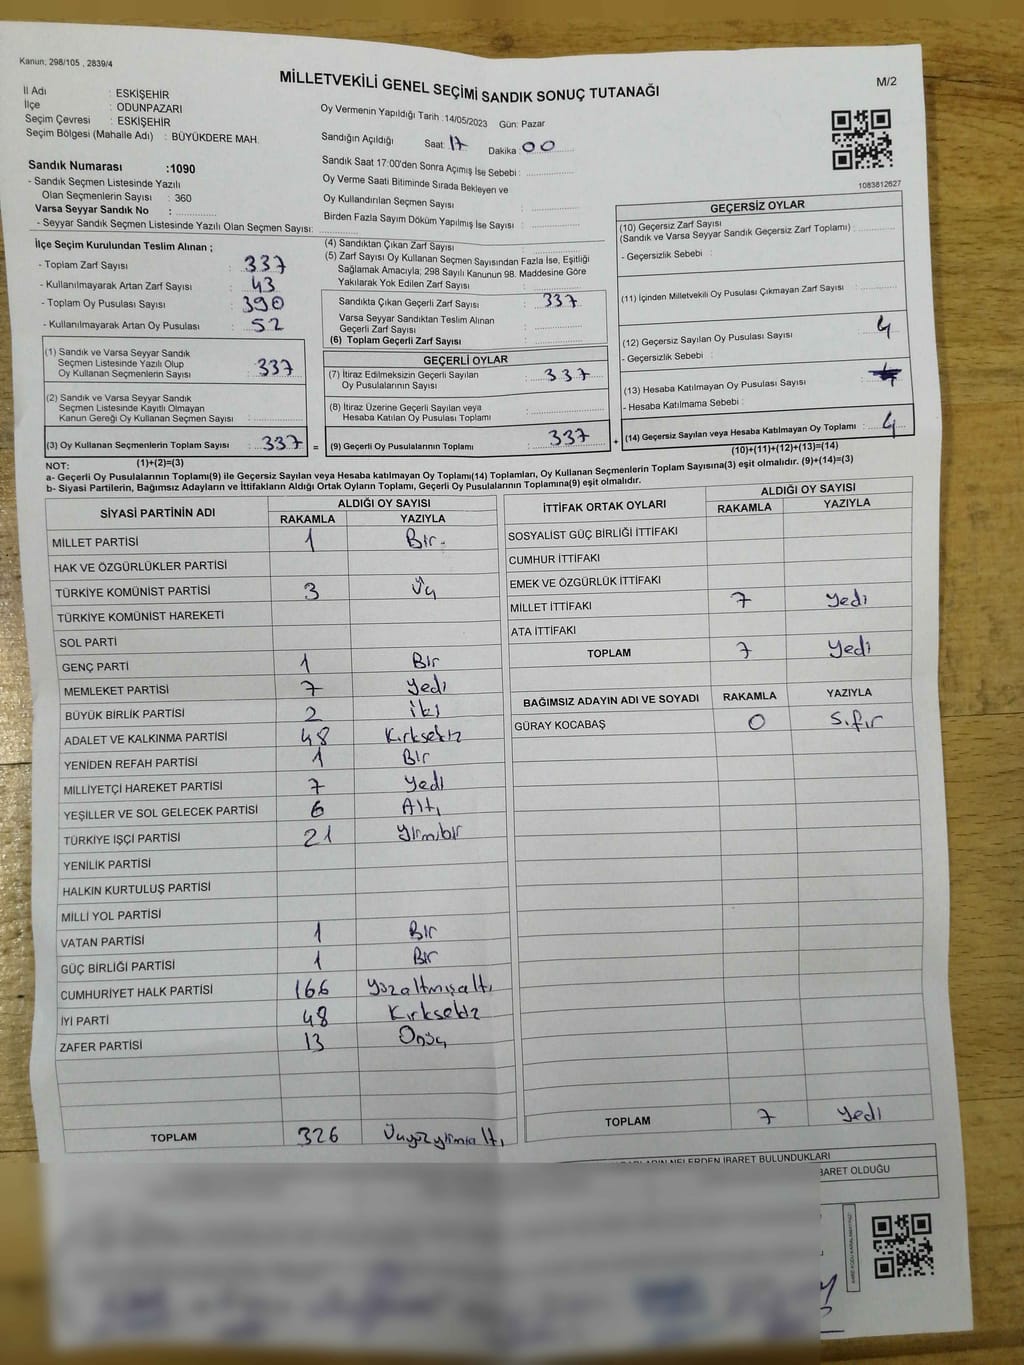 Kanun; 298/105 , 2839/4
MİLLETVEKİLİ GENEL SEÇİMİ SANDIK SONUÇ TUTANAĞI
M/2
İl Adı : ESKİŞEHİR
İlçe : ODUNPAZARI
Seçim Çevresi : ESKİŞEHİR
Seçim Bölgesi (Mahalle Adı) : BÜYÜKDERE MAH.
Sandık Numarası :1090
- Sandık Seçmen Listesinde Yazılı
Olan Seçmenlerin Sayısı : 360
Varsa Seyyar Sandık No :
- Seyyar Sandık Seçmen Listesinde Yazılı Olan Seçmen Sayısı:
Oy Vermenin Yapıldığı Tarih : 14/05/2023 Gün: Pazar
Sandığın Açıldığı Saat: 17 Dakika : 00
Sandık Saat 17:00'den Sonra Açımış İse Sebebi :
Oy Verme Saati Bitiminde Sırada Bekleyen ve
Oy Kullandırılan Seçmen Sayısı :
Birden Fazla Sayım Döküm Yapılmış İse Sayısı :
1083812627
İlçe Seçim Kurulundan Teslim Alınan ;
- Toplam Zarf Sayısı : 337
- Kullanılmayarak Artan Zarf Sayısı : 43
- Toplam Oy Pusulası Sayısı : 390
- Kullanılmayarak Artan Oy Pusulası : 52
(1) Sandık ve Varsa Seyyar Sandık
Seçmen Listesinde Yazılı Olup
Oy Kullanan Seçmenlerin Sayısı : 337
(2) Sandık ve Varsa Seyyar Sandık
Seçmen Listesinde Kayıtlı Olmayan
Kanun Gereği Oy Kullanan Seçmen Sayısı :
(3) Oy Kullanan Seçmenlerin Toplam Sayısı : 337 =
(1)+(2)=(3)
(4) Sandıktan Çıkan Zarf Sayısı :
(5) Zarf Sayısı Oy Kullanan Seçmen Sayısından Fazla İse, Eşitliği
Sağlamak Amacıyla; 298 Sayılı Kanunun 98. Maddesine Göre
Yakılarak Yok Edilen Zarf Sayısı :
Sandıkta Çıkan Geçerli Zarf Sayısı : 337
Varsa Seyyar Sandıktan Teslim Alınan
Geçerli Zarf Sayısı :
(6) Toplam Geçerli Zarf Sayısı :
GEÇERLİ OYLAR
(7) İtiraz Edilmeksizin Geçerli Sayılan
Oy Pusulalarının Sayısı : 337
(8) İtiraz Üzerine Geçerli Sayılan veya
Hesaba Katılan Oy Pusulası Toplamı :
(9) Geçerli Oy Pusulalarının Toplamı : 337 +
GEÇERSİZ OYLAR
(10) Geçersiz Zarf Sayısı
(Sandık ve Varsa Seyyar Sandık Geçersiz Zarf Toplamı) :
- Geçersizlik Sebebi :
(11) İçinden Milletvekili Oy Pusulası Çıkmayan Zarf Sayısı :
(12) Geçersiz Sayılan Oy Pusulası Sayısı : 4
- Geçersizlik Sebebi :
(13) Hesaba Katılmayan Oy Pusulası Sayısı :
- Hesaba Katılmama Sebebi :
(14) Geçersiz Sayılan veya Hesaba Katılmayan Oy Toplamı : 4
(10)+(11)+(12)+(13)=(14)
NOT:
a- Geçerli Oy Pusulalarının Toplamı(9) ile Geçersiz Sayılan veya Hesaba katılmayan Oy Toplamı(14) Toplamları, Oy Kullanan Seçmenlerin Toplam Sayısına(3) eşit olmalıdır. (9)+(14)=(3)
b- Siyasi Partilerin, Bağımsız Adayların ve İttifakların Aldığı Ortak Oyların Toplamı, Geçerli Oy Pusulalarının Toplamına(9) eşit olmalıdır.
SİYASİ PARTİNİN ADI ALDIĞI OY SAYISI
RAKAMLA YAZIYLA
MİLLET PARTİSİ 1 Bir
HAK VE ÖZGÜRLÜKLER PARTİSİ
TÜRKİYE KOMÜNİST PARTİSİ 3 Üç
TÜRKİYE KOMÜNİST HAREKETİ
SOL PARTİ
GENÇ PARTİ 1 Bir
MEMLEKET PARTİSİ 7 Yedi
BÜYÜK BİRLİK PARTİSİ 2 İki
ADALET VE KALKINMA PARTİSİ 48 Kırksekiz
YENİDEN REFAH PARTİSİ 1 Bir
MİLLİYETÇİ HAREKET PARTİSİ 7 Yedi
YEŞİLLER VE SOL GELECEK PARTİSİ 6 Altı
TÜRKİYE İŞÇİ PARTİSİ 21 Yirmibir
YENİLİK PARTİSİ
HALKIN KURTULUŞ PARTİSİ
MİLLİ YOL PARTİSİ
VATAN PARTİSİ 1 Bir
GÜÇ BİRLİĞİ PARTİSİ 1 Bir
CUMHURİYET HALK PARTİSİ 166 Yüzaltmışaltı
İYİ PARTİ 48 Kırksekiz
ZAFER PARTİSİ 13 Onüç
TOPLAM 326 Üçyüzyirmialtı
İTTİFAK ORTAK OYLARI ALDIĞI OY SAYISI
RAKAMLA YAZIYLA
SOSYALİST GÜÇ BİRLİĞİ İTTİFAKI
CUMHUR İTTİFAKI
EMEK VE ÖZGÜRLÜK İTTİFAKI
MİLLET İTTİFAKI 7 Yedi
ATA İTTİFAKI
TOPLAM 7 Yedi
BAĞIMSIZ ADAYIN ADI VE SOYADI RAKAMLA YAZIYLA
GÜRAY KOCABAŞ 0 Sıfır
TOPLAM 7 Yedi
NELERDEN İBARET BULUNDUKLARI
BARET OLDUĞU